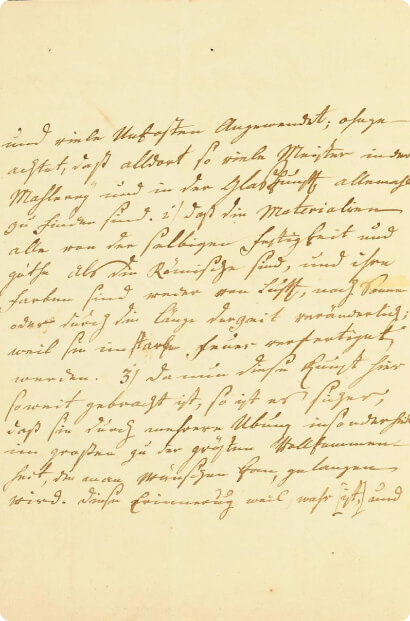 und viele Unkosten Angewendet; ohnge-
achtet, daß alldort so viele Meister in der
Mahlerey und in der Glaskunst allemahl
zu finden sind. 2) daß die Materialien
alle von der selbigen Festigkeit und
güthe als die Römische sind, und ihre
Farben sind weder von Lufft, noch Sonne
oder durch die länge der Zeit veränderlich;
weil sie im starken Feuer verfertiget
werden. 3) da nun diese Kunst hier
soweit gebracht ist, so ist es sicher,
daß sie durch mehrere Übung insonderheit
im großen zu der größten Vollkommen-
heit, die man wünschen kan, gelangen
wird. diese Erinnerung weil wahr [ist,] und